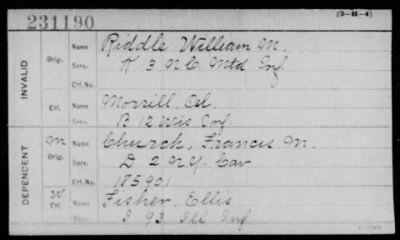 231190
(3-H-4)
INVALID
Orig. Name Riddle, William M.
Serv. K 3 N.C. Mtd Inf
Ctf. No.
Ctf. Name Morrill, Oel.
Serv. B 12 Wis Inf
DEPENDENT
M Orig. Name Church, Francis M.
Serv. D 2 N.Y. Cav
Ctf. No. 185901
W Ctf. Name Fisher, Ellis
Serv. I 93 Ill Inf